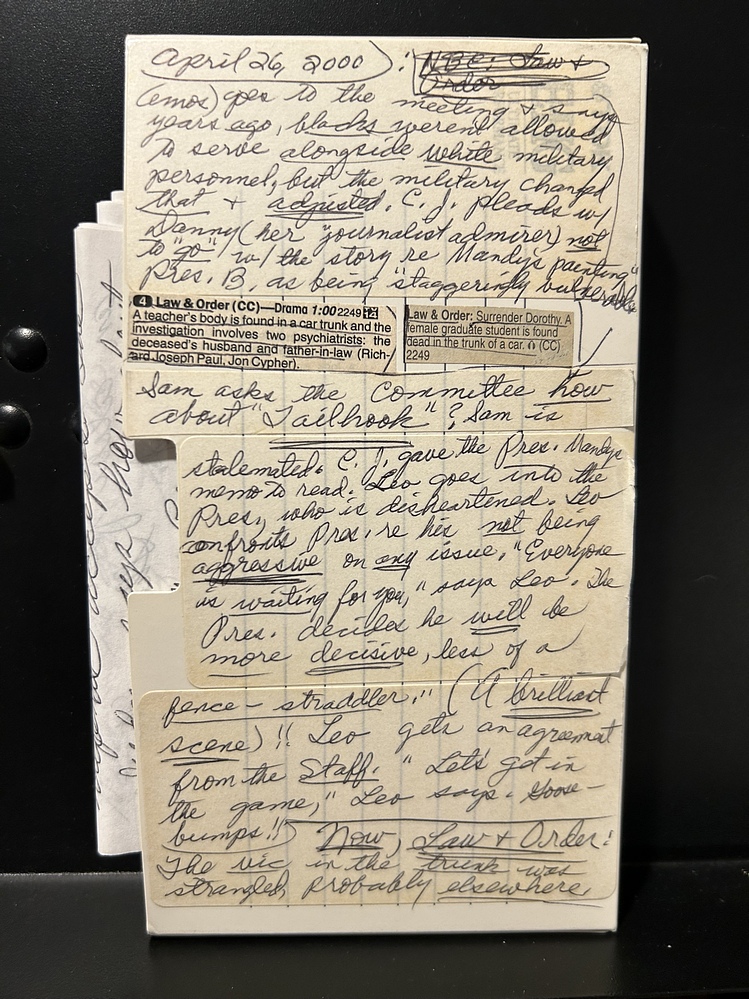 April 26, 2000) : NBC: Law +
Order
(Amos) goes to the meeting + says
years ago, blacks weren't allowed
to serve alongside white military
personnel, but the military changed
that + adjusted. C. J. pleads w/
Danny (her "journalist admirer) not
to "go" w/ the story re Mandy's painting
Pres. B. as being "staggeringly vulnerable"
4 Law & Order (CC)—Drama 1:00 2249
A teacher's body is found in a car trunk and the
investigation involves two psychiatrists: the
deceased's husband and father-in-law (Rich-
ard Joseph Paul, Jon Cypher).
Law & Order: Surrender Dorothy. A
female graduate student is found
dead in the trunk of a car. (CC)
2249
Sam asks the Committee how
about "Tailhook"? Sam is
stalemated. C. J. gave the Pres. Mandy's
memo to read. Leo goes into the
Pres., who is disheartened. Leo
confronts Pres. re his not being
aggressive on any issue. "Everyone
is waiting for you," says Leo. The
Pres. decides he will be
more decisive, less of a
fence-straddler." (A brilliant
scene)!! Leo gets an agreement
from the Staff. "Let's get in
the game," Leo says. Goose-
bumps!! Now, Law + Order:
The vic in the trunk was
strangled, probably elsewhere